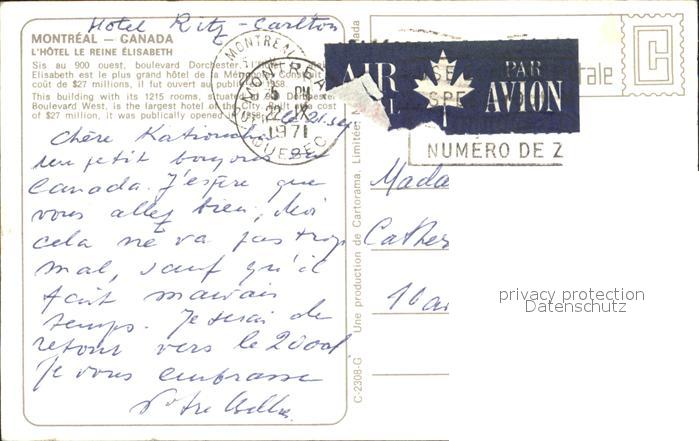 Hotel Ritz-Carlton
MONTRÉAL — CANADA
L'HÔTEL LE REINE ÉLISABETH
Sis au 900 ouest, boulevard Dorchester, l'Hôtel
Elisabeth est le plus grand hôtel de la Métropole. Construit au
coût de $27 millions, il fut ouvert au public en 1958.
This building with its 1215 rooms, situated at 900 Dorchester
Boulevard West, is the largest hotel in the City. Built at a cost
of $27 million, it was publically opened in 1958.
le 21. sep
Chère
un petit bonjour du
Canada. J'espère que
vous allez bien, Moi
cela ne va pas trop
mal, sauf qu'il
fait mauvais
temps. Je serai de
retour vers le 20 oct.
Je vous embrasse
Votre
MONTRÉAL
MONTREAL
5 PM
22 IX
1971
QUEBEC
AIR
PAR
AVION
NUMÉRO DE Z
C
Mada
Cather
16 a
C-2308-G Une production de Cartorama, Limitée, M
privacy protection
Datenschutz